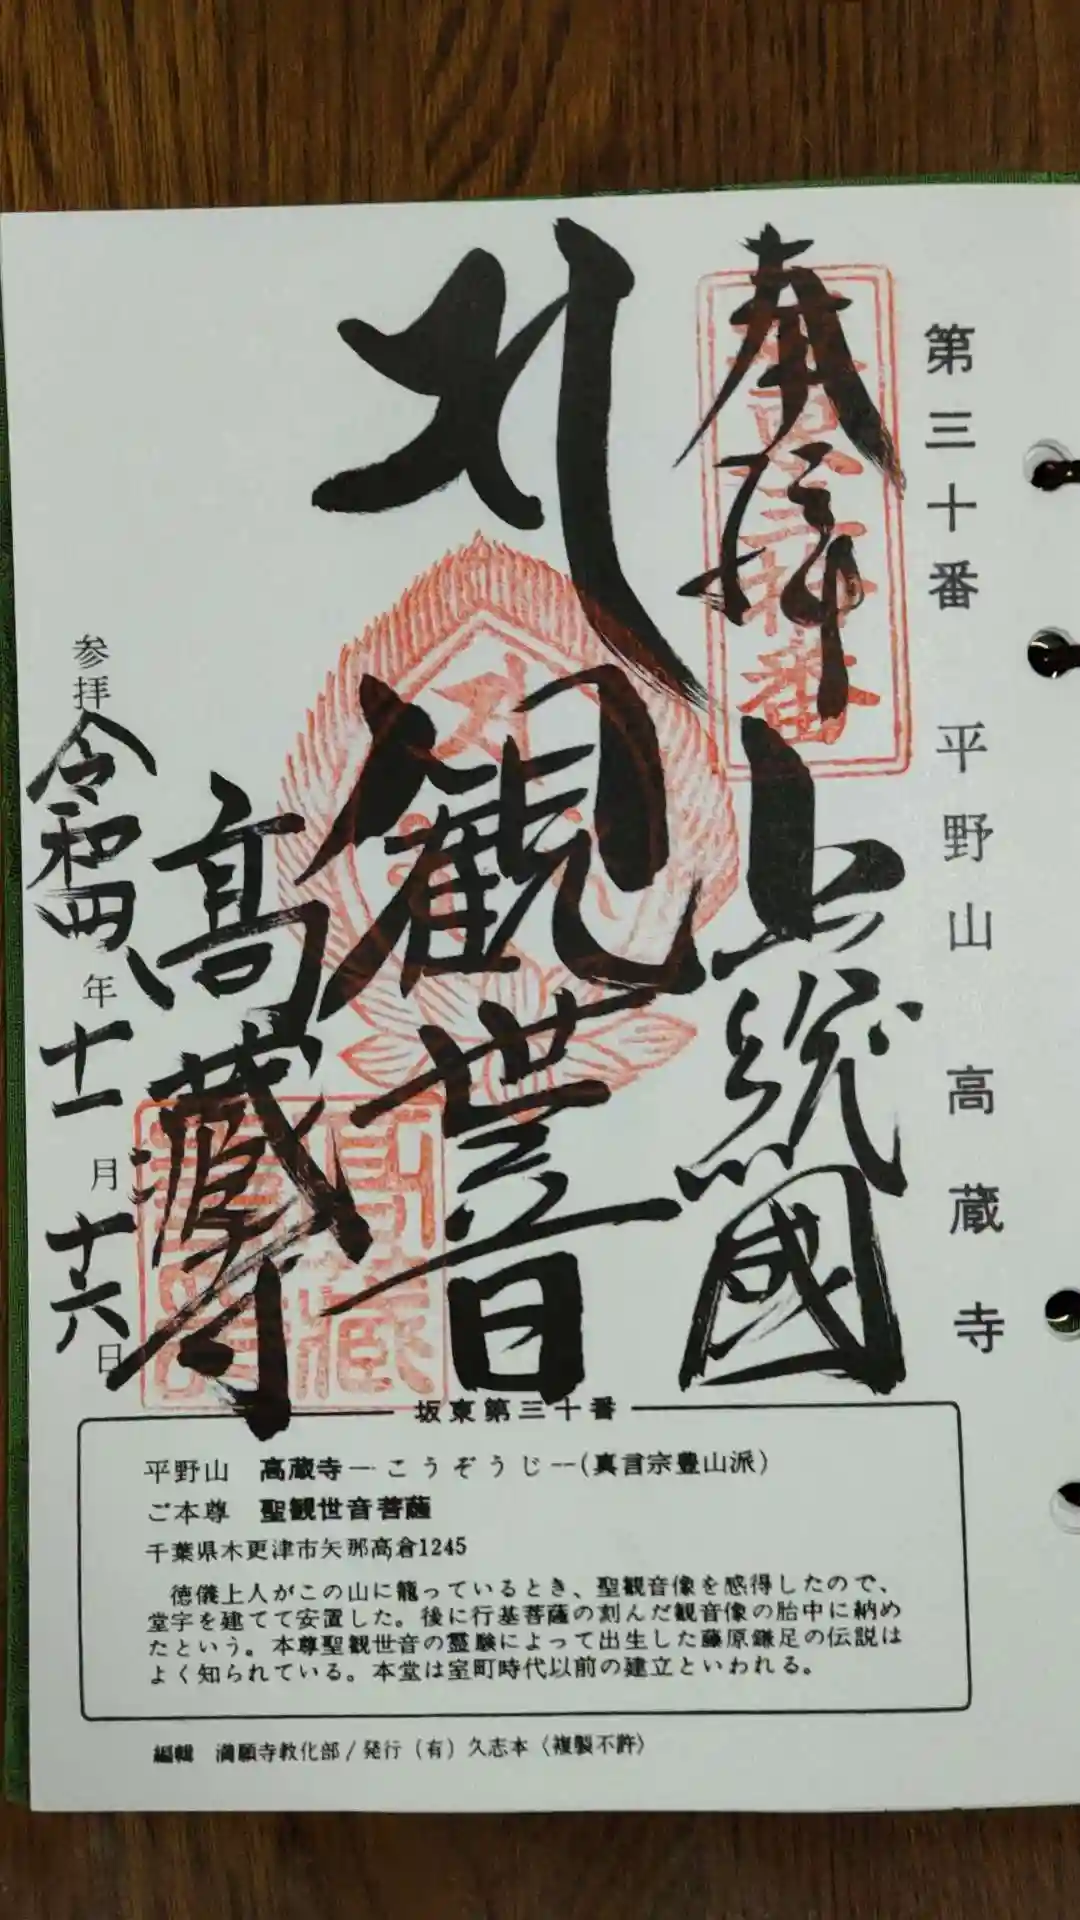 第三十番 平野山 高蔵寺
奉拝
上総國
観世音
高蔵寺
参拝
令和四年十一月十六日
坂東第三十番
平野山 高蔵寺―こうぞうじ―(真言宗豊山派)
ご本尊 聖観世音菩薩
千葉県木更津市矢那高倉1245
徳儀上人がこの山に籠っているとき、聖観音像を感得したので、
堂字を建てて安置した。後に行基菩薩の刻んだ観音像の胎中に納め
たという。本尊聖観世音の霊験によって出生した藤原鎌足の伝説は
よく知られている。本堂は室町時代以前の建立といわれる。
編輯 満願寺教化部/発行(有)久志本〈複製不許〉